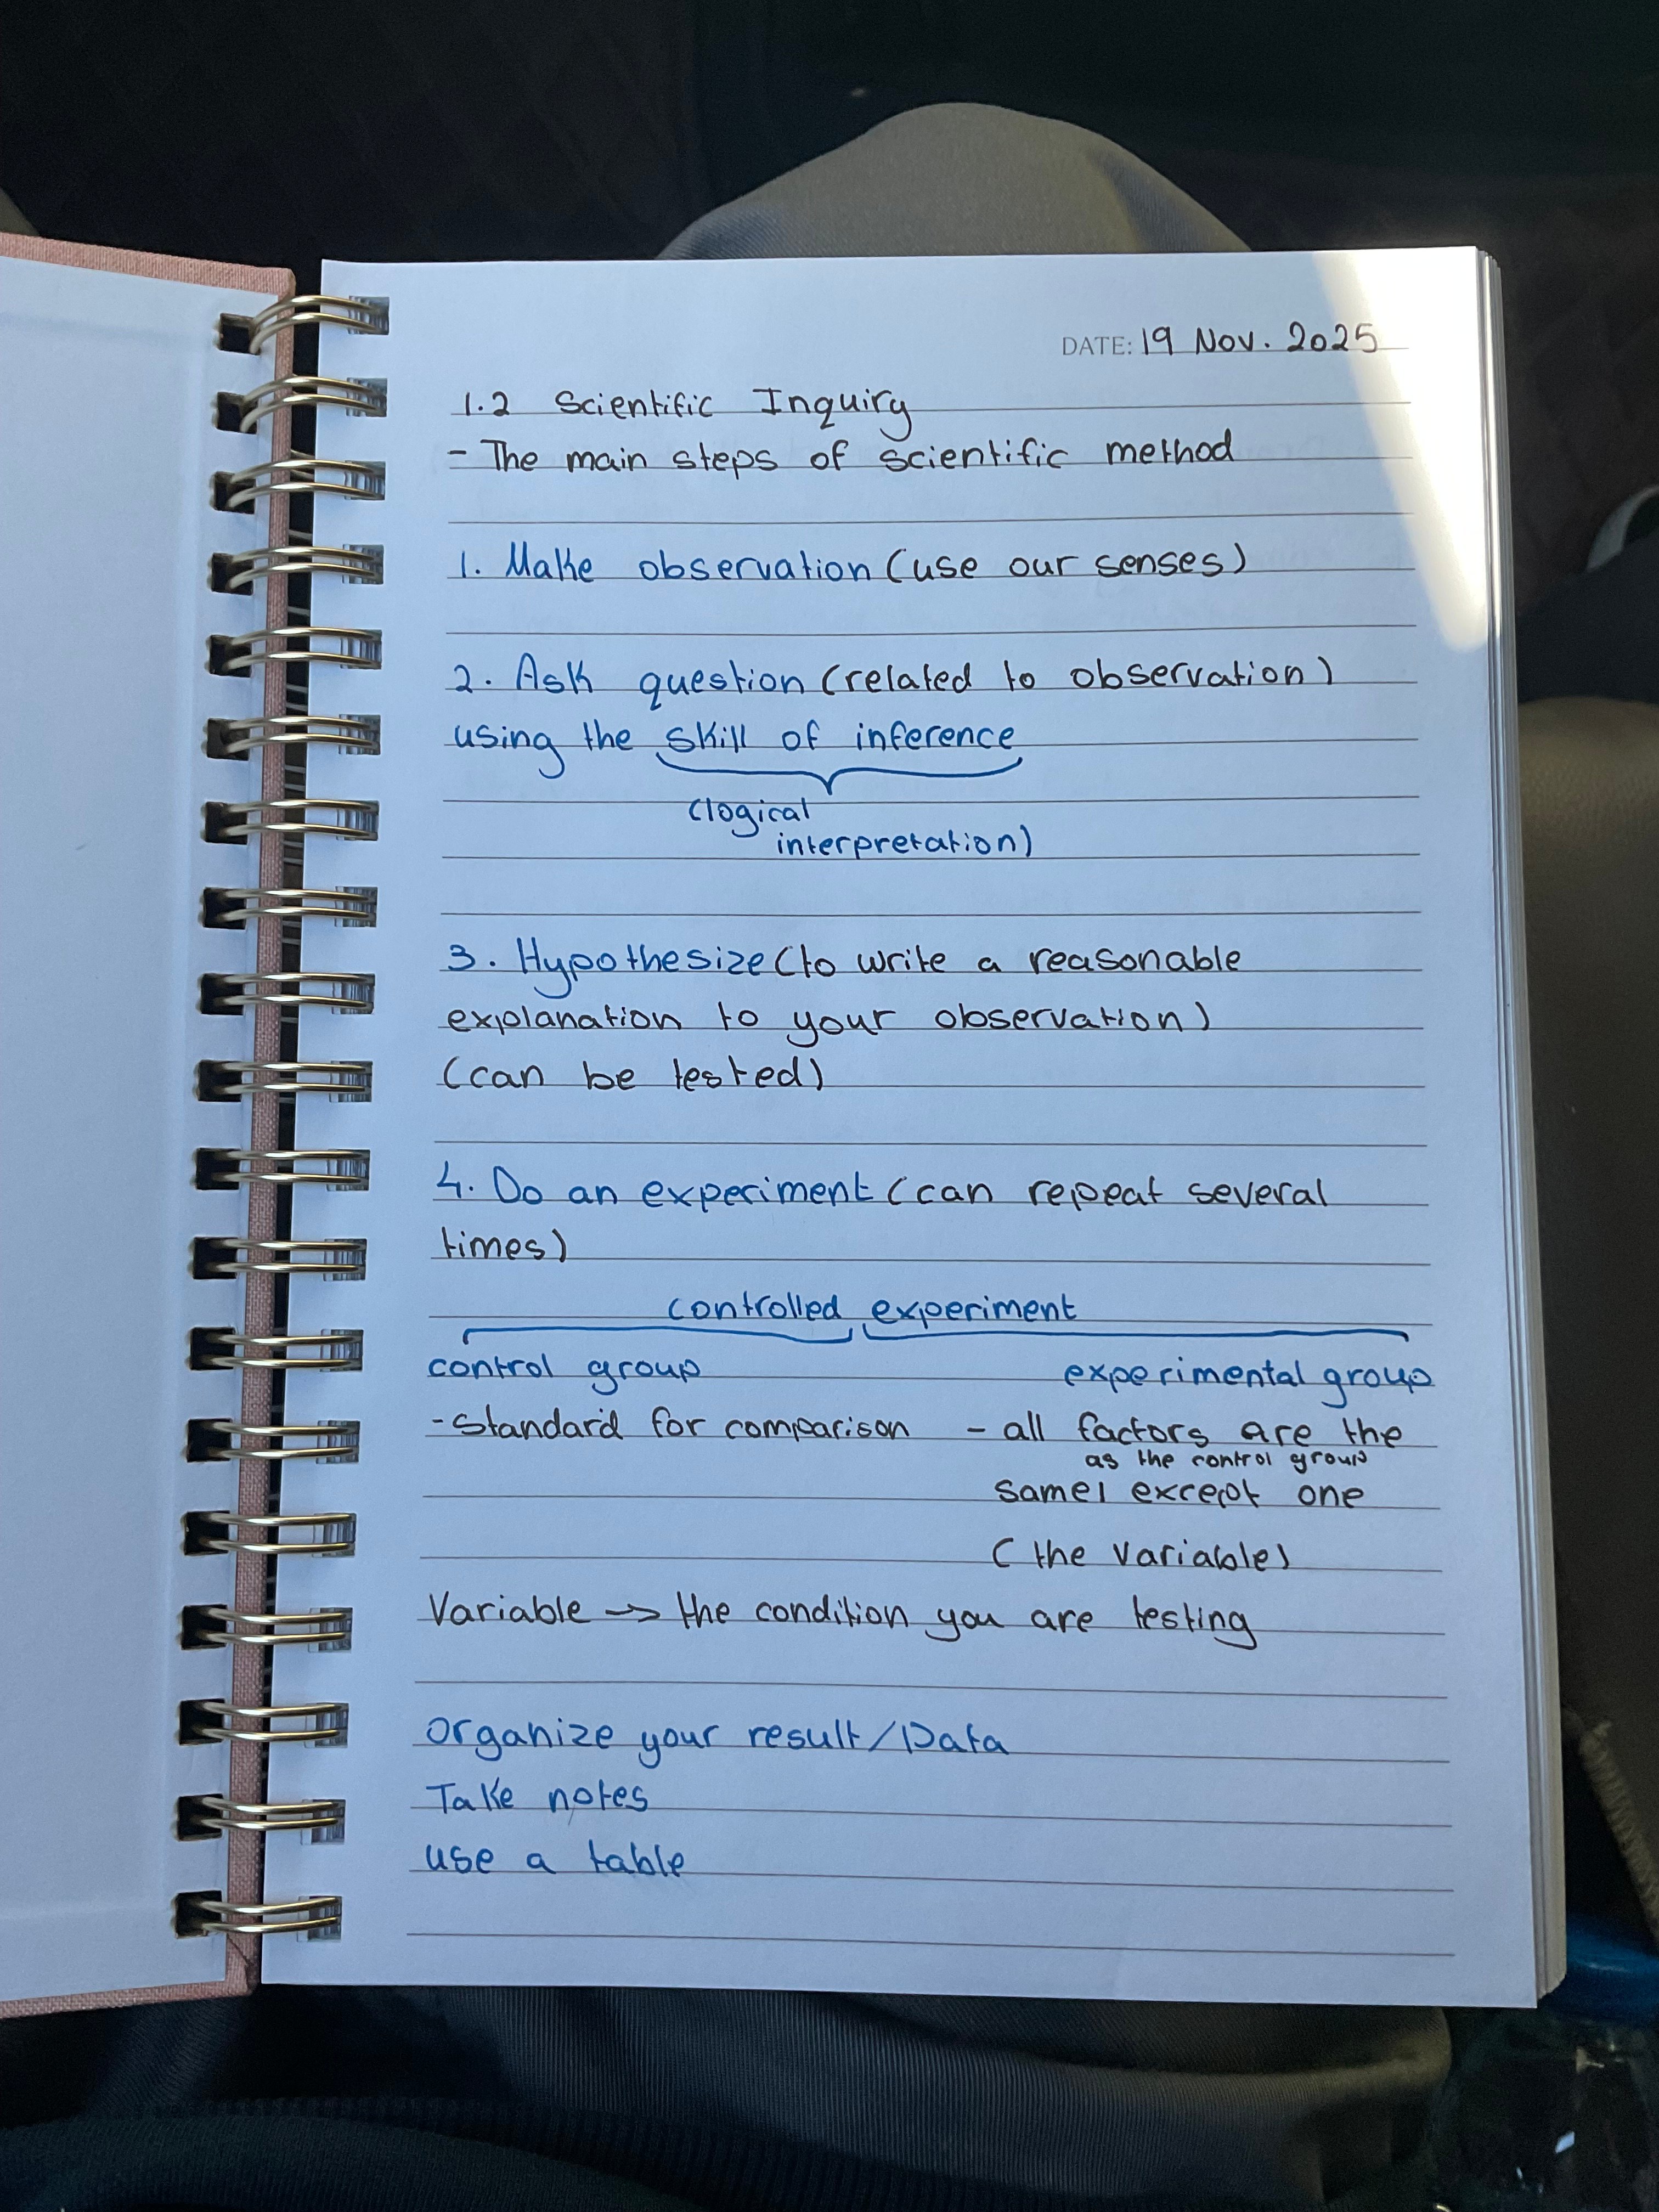 DATE: 19 Nov. 2025
1.2 Scientific Inquiry
- The main steps of scientific method
1. Make observation (use our senses)
2. Ask question (related to observation)
using the skill of inference
(logical
interpretation)
3. Hypothesize (to write a reasonable
explanation to your observation)
(can be tested)
4. Do an experiment (can repeat several
times)
controlled experiment
control group experimental group
- Standard for comparison - all factors are the
as the control group
same | except one
(the variable)
Variable -> the condition you are testing
organize your result/Data
Take notes
use a table